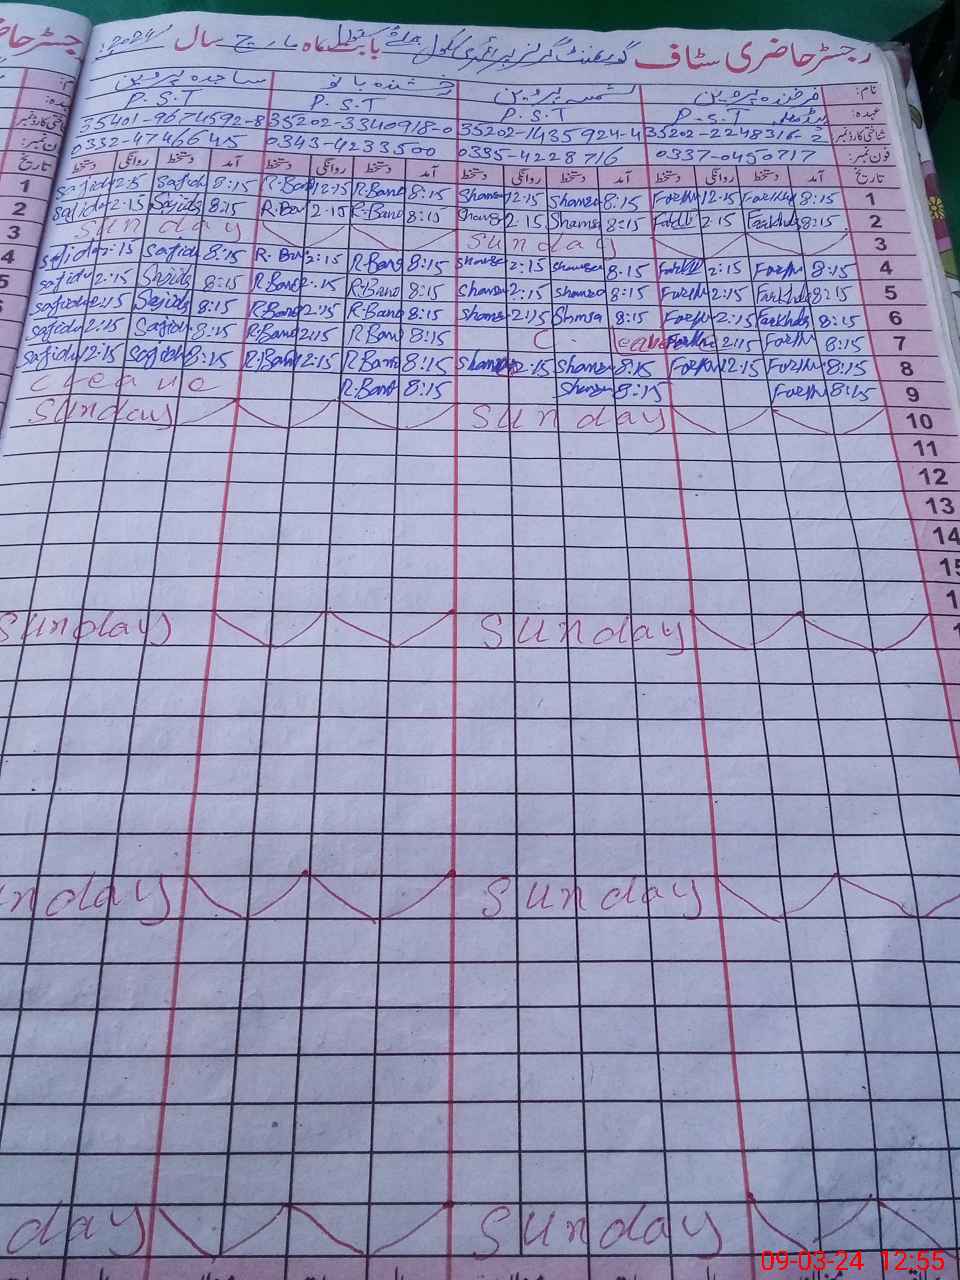 رجسٹر حاضری سٹاف گورنمنٹ گرلز پرائمری سکول بابت ماہ مارچ سال 2024
نام: فرخندہ پروین شمسہ پروین رخشندہ بانو ساجدہ پروین
عہدہ: P.S.T P.S.T P.S.T P.S.T
شناختی کارڈ نمبر: 35202-2248316-2 35202-1435924-4 35202-3340918-0 35401-9674592-8
فون نمبر: 0337-0450717 0335-4228716 0343-4233500 0332-4746645
تاریخ آمد دستخط روانگی دستخط آمد دستخط روانگی دستخط آمد دستخط روانگی دستخط آمد دستخط روانگی دستخط
1 Sajida 12:15 Sajida 8:15 R.Bano 12:15 R.Bano 8:15 Shamsa 12:15 Shamsa 8:15 12:15 8:15 1
2 Sajida 2:15 Sajida 8:15 R.Bano 2:15 R.Bano 8:15 Shamsa 2:15 Shamsa 8:15 2:15 Farkhda 8:15 2
3 Sunday Sunday 3
4 Sajida 2:15 Sajida 8:15 R.Bano 2:15 R.Bano 8:15 Shamsa 2:15 Shamsa 8:15 2:15 8:15 4
5 Sajida 2:15 Sajida 8:15 R.Bano 2:15 R.Bano 8:15 Shamsa 2:15 Shamsa 8:15 2:15 Farkhda 8:15 5
Sajida 2:15 Sajida 8:15 R.Bano 2:15 R.Bano 8:15 Shamsa 2:15 Shmsa 8:15 2:15 Farkhda 8:15 6
Sajida 2:15 Sajida 8:15 R.Bano 2:15 R.Bano 8:15 C. leave 2:15 8:15 7
Sajida 12:15 Sajida 8:15 R.Bano 12:15 R.Bano 8:15 Shamsa 2:15 Shamsa 8:15 12:15 8:15 8
C leave R.Bano 8:15 Shamsa 8:15 8:15 9
Sunday Sunday 10
11
12
13
14
15
1
Sunday Sunday 1
nday Sunday
day Sunday
09-03-24 12:55